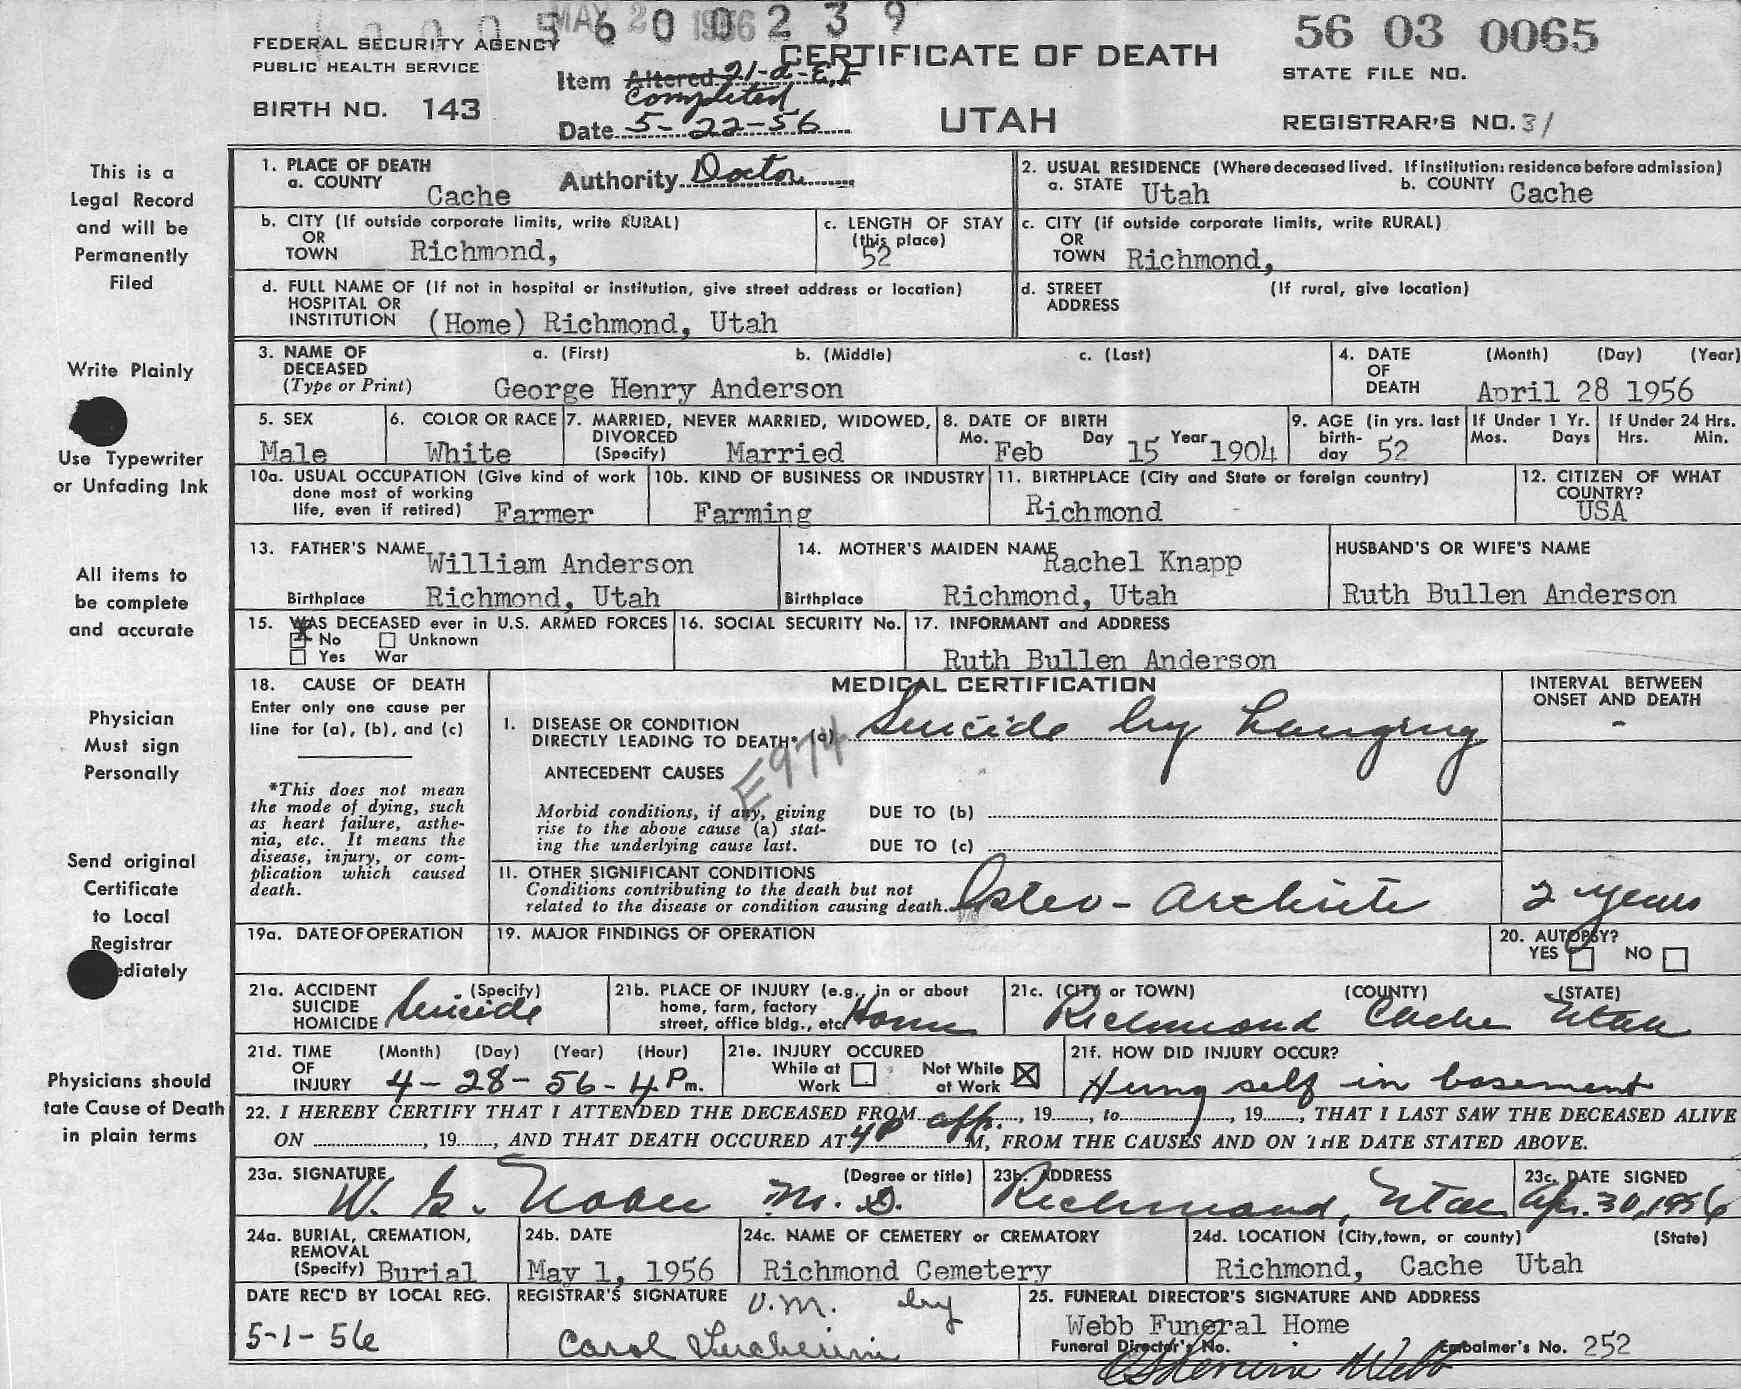 MAY 2 1956
5 6 0 0 2 3 9
56 03 0065
FEDERAL SECURITY AGENCY
PUBLIC HEALTH SERVICE
CERTIFICATE OF DEATH
STATE FILE NO.
Item Altered 21-a-E,F
Completed
BIRTH NO. 143
Date 5-22-56
UTAH
REGISTRAR'S NO. 31
This is a
Legal Record
and will be
Permanently
Filed
Write Plainly
Use Typewriter
or Unfading Ink
All items to
be complete
and accurate
Physician
Must sign
Personally
Send original
Certificate
to Local
Registrar
ediately
Physicians should
tate Cause of Death
in plain terms
1. PLACE OF DEATH
a. COUNTY Cache
Authority Doctor
2. USUAL RESIDENCE (Where deceased lived. If institution: residence before admission)
a. STATE Utah b. COUNTY Cache
b. CITY (If outside corporate limits, write RURAL)
OR
TOWN Richmond,
c. LENGTH OF STAY
(this place)
52
c. CITY (if outside corporate limits, write RURAL)
OR
TOWN Richmond,
d. FULL NAME OF (If not in hospital or institution, give street address or location)
HOSPITAL OR
INSTITUTION (Home) Richmond, Utah
d. STREET (If rural, give location)
ADDRESS
3. NAME OF a. (First) b. (Middle) c. (Last)
DECEASED
(Type or Print) George Henry Anderson
4. DATE (Month) (Day) (Year)
OF
DEATH April 28 1956
5. SEX
Male
6. COLOR OR RACE
White
7. MARRIED, NEVER MARRIED, WIDOWED,
DIVORCED
(Specify) Married
8. DATE OF BIRTH
Mo. Feb Day 15 Year 1904
9. AGE (in yrs. last
birth-
day 52
If Under 1 Yr.
Mos. Days
If Under 24 Hrs.
Hrs. Min.
10a. USUAL OCCUPATION (Give kind of work
done most of working
life, even if retired) Farmer
10b. KIND OF BUSINESS OR INDUSTRY
Farming
11. BIRTHPLACE (City and State or foreign country)
Richmond
12. CITIZEN OF WHAT
COUNTRY?
USA
13. FATHER'S NAME William Anderson
Birthplace Richmond, Utah
14. MOTHER'S MAIDEN NAME Rachel Knapp
Birthplace Richmond, Utah
HUSBAND'S OR WIFE'S NAME
Ruth Bullen Anderson
15. WAS DECEASED ever in U.S. ARMED FORCES
X No Unknown
Yes War
16. SOCIAL SECURITY No.
17. INFORMANT and ADDRESS
Ruth Bullen Anderson
18. CAUSE OF DEATH
Enter only one cause per
line for (a), (b), and (c)
*This does not mean
the mode of dying, such
as heart failure, asthe-
nia, etc. It means the
disease, injury, or com-
plication which caused
death.
MEDICAL CERTIFICATION
INTERVAL BETWEEN
ONSET AND DEATH
-
I. DISEASE OR CONDITION
DIRECTLY LEADING TO DEATH* (a) Suicide by hanging
E974
ANTECEDENT CAUSES
Morbid conditions, if any, giving
rise to the above cause (a) stat-
ing the underlying cause last.
DUE TO (b)
DUE TO (c)
II. OTHER SIGNIFICANT CONDITIONS
Conditions contributing to the death but not
related to the disease or condition causing death. Osteo-
2 years
19a. DATE OF OPERATION
19. MAJOR FINDINGS OF OPERATION
20. AUTOPSY?
YES NO
21a. ACCIDENT (Specify)
SUICIDE
HOMICIDE Suicide
21b. PLACE OF INJURY (e.g., in or about
home, farm, factory
street, office bldg., etc. Home
21c. (CITY or TOWN) (COUNTY) (STATE)
Richmond Cache Utah
21d. TIME (Month) (Day) (Year) (Hour)
OF
INJURY 4-28-56-4 P m.
21e. INJURY OCCURED
While at Not While
Work at Work X
21f. HOW DID INJURY OCCUR?
Hung self in basement
22. I HEREBY CERTIFY THAT I ATTENDED THE DECEASED FROM, 19, to, 19, THAT I LAST SAW THE DECEASED ALIVE
ON, 19, AND THAT DEATH OCCURED AT 4P M, FROM THE CAUSES AND ON THE DATE STATED ABOVE.
23a. SIGNATURE (Degree or title)
W. G. M.D.
23b. ADDRESS
Richmond, Utah
23c. DATE SIGNED
Apr. 30, 1956
24a. BURIAL, CREMATION,
REMOVAL
(Specify) Burial
24b. DATE
May 1, 1956
24c. NAME OF CEMETERY or CREMATORY
Richmond Cemetery
24d. LOCATION (City, town, or county) (State)
Richmond, Cache Utah
DATE REC'D BY LOCAL REG.
5-1-56
REGISTRAR'S SIGNATURE V.M. by
Carol
25. FUNERAL DIRECTOR'S SIGNATURE AND ADDRESS
Webb Funeral Home
Funeral Director's No. Embalmer's No. 252
Webb